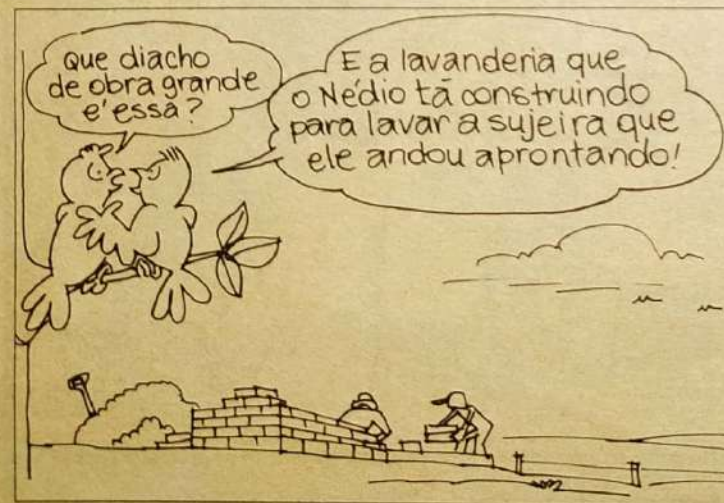 Que diacho
de obra grande
e' essa?
E a lavanderia que
o Nédio tá construindo
para lavar a sujeira que
ele andou aprontando!